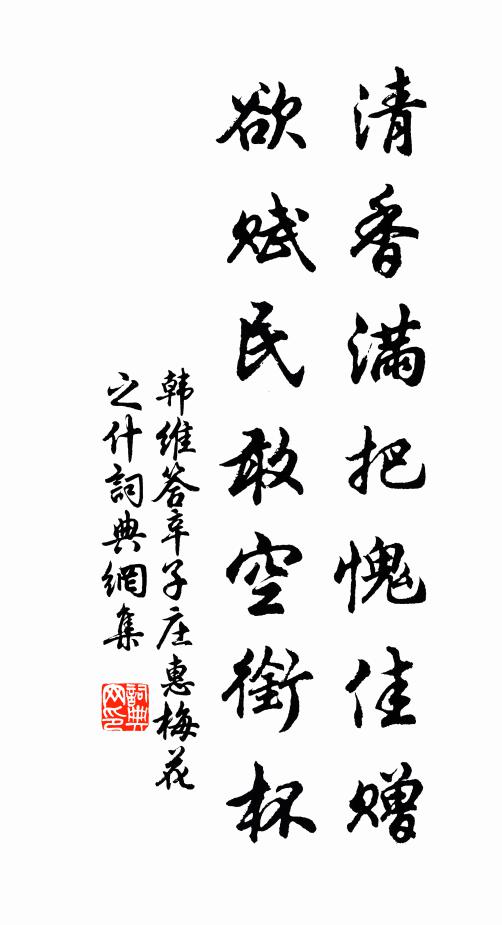 清香满把愧佳赠
欲赋民敢空衔杯
韩维答辛子庄惠梅花
之什詞典網集
詞典网印